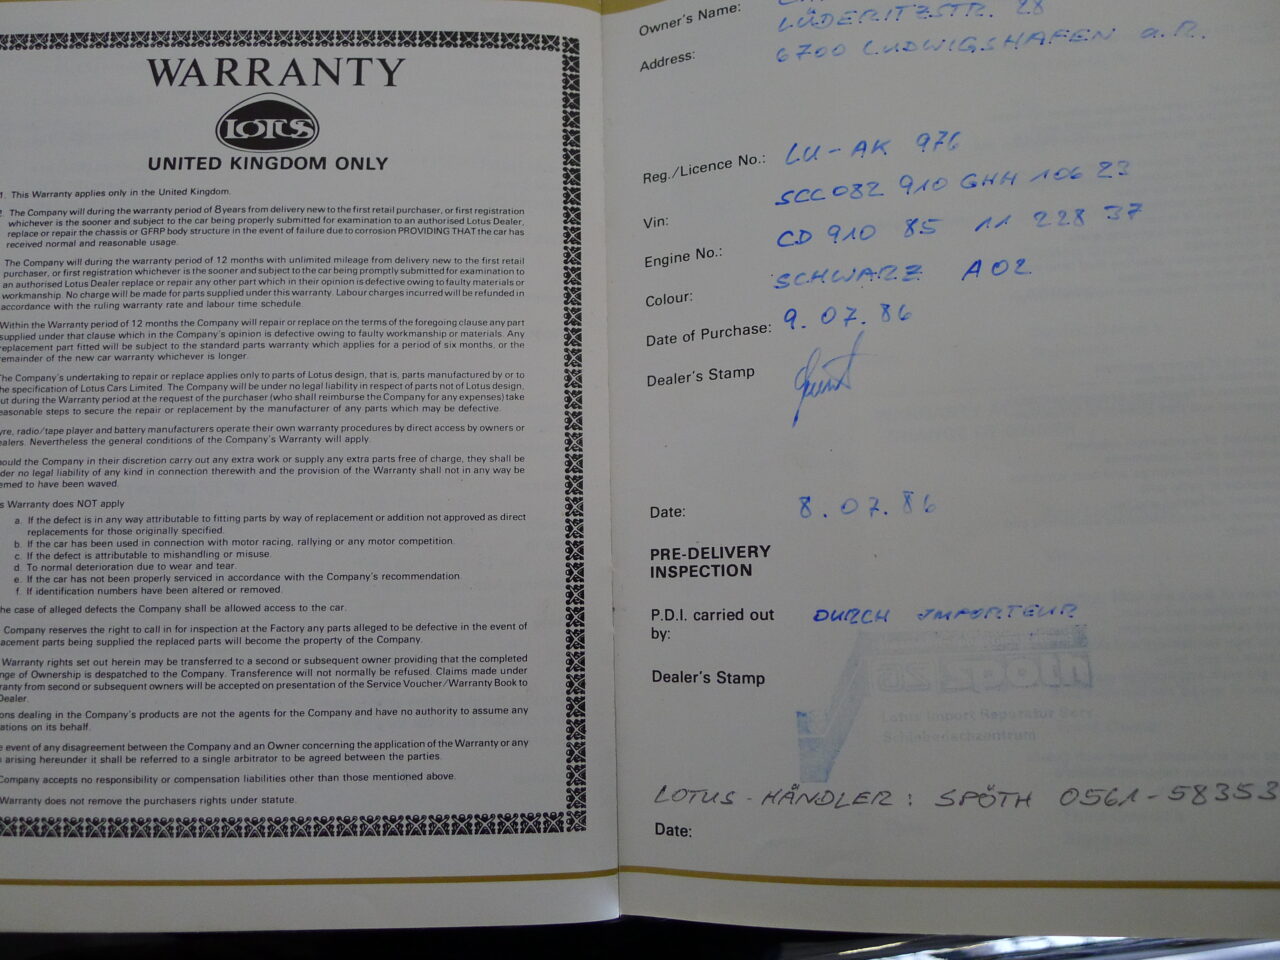 WARRANTY
LOTUS
UNITED KINGDOM ONLY
1. This Warranty applies only in the United Kingdom.
The Company will during the warranty period of 8 years from delivery new to the first retail purchaser, or first registration
whichever is the sooner and subject to the car being properly submitted for examination to an authorised Lotus Dealer,
replace or repair the chassis or GFRP body structure in the event of failure due to corrosion PROVIDING THAT the car has
received normal and reasonable usage.
The Company will during the warranty period of 12 months with unlimited mileage from delivery new to the first retail
purchaser, or first registration whichever is the sooner and subject to the car being promptly submitted for examination to
an authorised Lotus Dealer replace or repair any other part which in their opinion is defective owing to faulty materials or
workmanship. No charge will be made for parts supplied under this warranty. Labour charges incurred will be refunded in
accordance with the ruling warranty rate and labour time schedule.
Within the Warranty period of 12 months the Company will repair or replace on the terms of the foregoing clause any part
supplied under that clause which in the Company's opinion is defective owing to faulty workmanship or materials. Any
replacement part fitted will be subject to the standard parts warranty which applies for a period of six months, or the
remainder of the new car warranty whichever is longer.
The Company's undertaking to repair or replace applies only to parts of Lotus design, that is, parts manufactured by or to
he specification of Lotus Cars Limited. The Company will be under no legal liability in respect of parts not of Lotus design,
ut during the Warranty period at the request of the purchaser (who shall reimburse the Company for any expenses) take
easonable steps to secure the repair or replacement by the manufacturer of any parts which may be defective.
yre, radio/tape player and battery manufacturers operate their own warranty procedures by direct access by owners or
ealers. Nevertheless the general conditions of the Company's Warranty will apply.
ould the Company in their discretion carry out any extra work or supply any extra parts free of charge, they shall be
der no legal liability of any kind in connection therewith and the provision of the Warranty shall not in any way be
emed to have been waved.
s Warranty does NOT apply
a. If the defect is in any way attributable to fitting parts by way of replacement or addition not approved as direct
replacements for those originally specified.
b. If the car has been used in connection with motor racing, rallying or any motor competition.
c. If the defect is attributable to mishandling or misuse.
d. To normal deterioration due to wear and tear.
e. If the car has not been properly serviced in accordance with the Company's recommendation
f. If identification numbers have been altered or removed.
he case of alleged defects the Company shall be allowed access to the car.
Company reserves the right to call in for inspection at the Factory any parts alleged to be defective in the event of
acement parts being supplied the replaced parts will become the property of the Company.
Warranty rights set out herein may be transferred to a second or subsequent owner providing that the completed
nge of Ownership is despatched to the Company. Transference will not normally be refused. Claims made under
ranty from second or subsequent owners will be accepted on presentation of the Service Voucher/Warranty Book to
Dealer.
ons dealing in the Company's products are not the agents for the Company and have no authority to assume any
ations on its behalf.
e event of any disagreement between the Company and an Owner concerning the application of the Warranty or any
arising hereunder it shall be referred to a single arbitrator to be agreed between the parties.
Company accepts no responsibility or compensation liabilities other than those mentioned above.
Warranty does not remove the purchasers rights under statute.
Owner's Name:
LÜDERITZSTR. 28
Address: 6700 LUDWIGSHAFEN a.R.
Reg./Licence No.: LU-AK 976
Vin: SCC082 910 GHH 106 23
Engine No.: CD 910 85 11 228 37
Colour: SCHWARZ A02
Date of Purchase: 9.07.86
Dealer's Stamp
Date: 8.07.86
PRE-DELIVERY
INSPECTION
P.D.I. carried out DURCH IMPORTEUR
by:
Dealer's Stamp
Späth
Lotus Import Reparatur Serv.
Schiebedachzentrum
LOTUS-HÄNDLER: SPÖTH 0561-58353
Date: